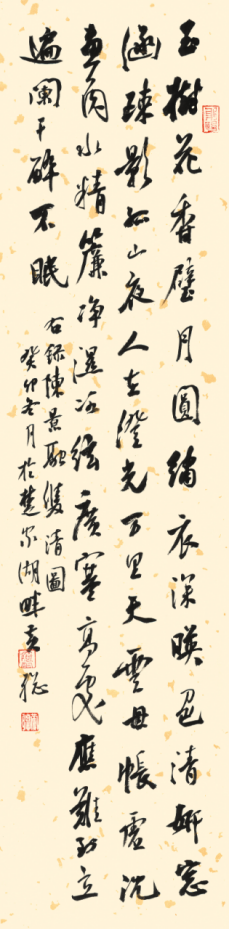 玉樹花香璧月圓縞衣深暎色清妍窓
涵疎影孤山夜人在澄光万里天雲母帳虛沉
畫角水精簾净濕冰絃廣寒高處應難到立
遍闌干醉不眠
右録陳景融雙清圖
癸卯冬月於楚家湖畔